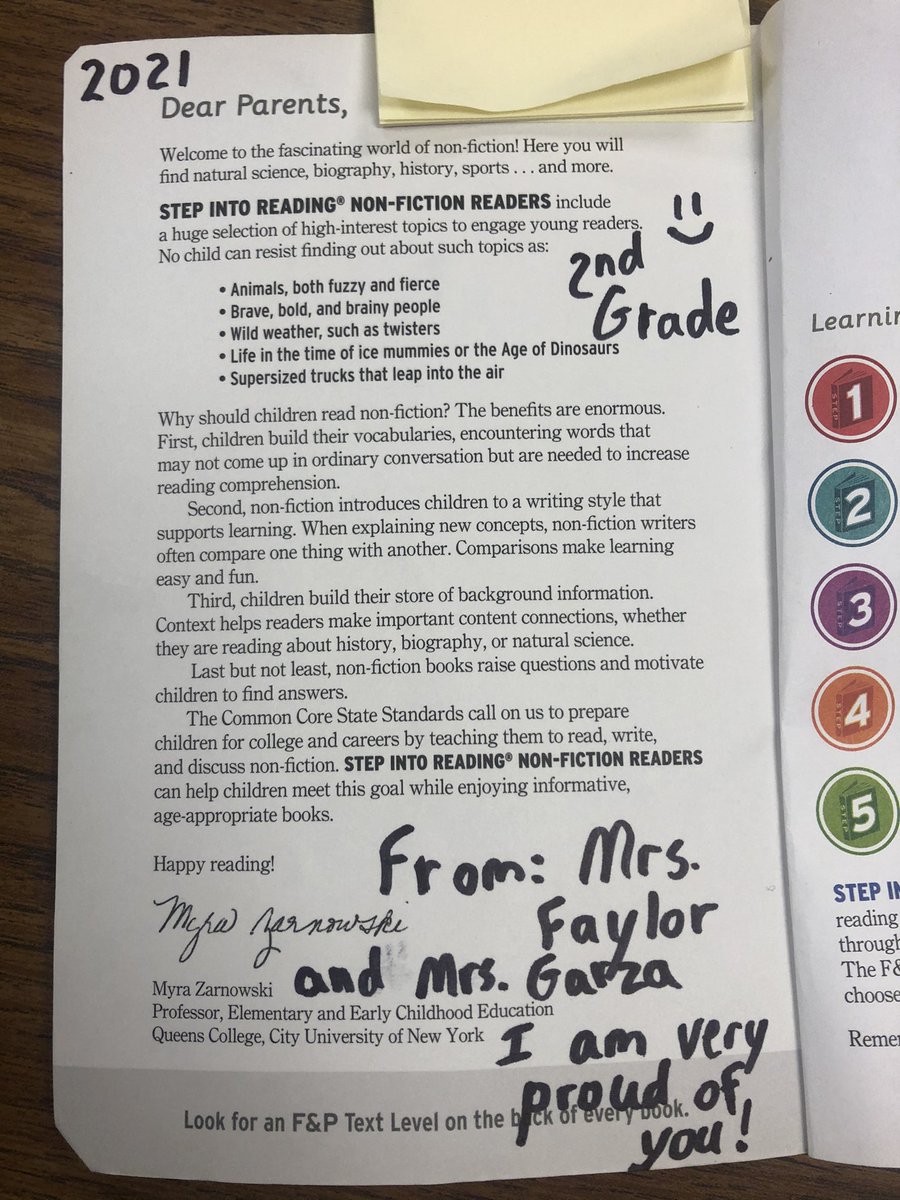 2021
Dear Parents,
Welcome to the fascinating world of non-fiction! Here you will
find natural science, biography, history, sports . . . and more.
STEP INTO READING® NON-FICTION READERS include
a huge selection of high-interest topics to engage young readers.
No child can resist finding out about such topics as:
2nd
Grade
• Animals, both fuzzy and fierce
• Brave, bold, and brainy people
• Wild weather, such as twisters
• Life in the time of ice mummies or the Age of Dinosaurs
• Supersized trucks that leap into the air
Why should children read non-fiction? The benefits are enormous.
First, children build their vocabularies, encountering words that
may not come up in ordinary conversation but are needed to increase
reading comprehension.
Second, non-fiction introduces children to a writing style that
supports learning. When explaining new concepts, non-fiction writers
often compare one thing with another. Comparisons make learning
easy and fun.
Third, children build their store of background information.
Context helps readers make important content connections, whether
they are reading about history, biography, or natural science.
Last but not least, non-fiction books raise questions and motivate
children to find answers.
The Common Core State Standards call on us to prepare
children for college and careers by teaching them to read, write,
and discuss non-fiction. STEP INTO READING® NON-FICTION READERS
can help children meet this goal while enjoying informative,
age-appropriate books.
Happy reading!
Myra Zarnowski
From: Mrs.
Faylor
and Mrs. Garza
Myra Zarnowski
Professor, Elementary and Early Childhood Education
Queens College, City University of New York
I am very
proud of
you!
Look for an F&P Text Level on the back of every book.
1
STEP
2
STEP
3
STEP
4
STEP
5
STEP
STEP
reading
through
The
choose